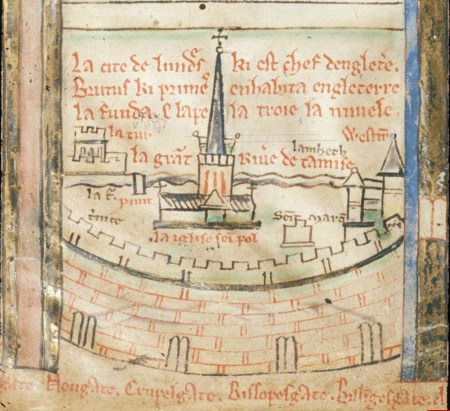 La cite de lundres ki est chef dengletere.
Brutus ki primes enhabita engleterre
la funda. E lapela troie la nuvele.
la tur
Westm
lamheth
la grant Rivere de tamise
punt
la iglise sei pol
Neugate. Crupelgate. Bissopesgate. Billigesgate.